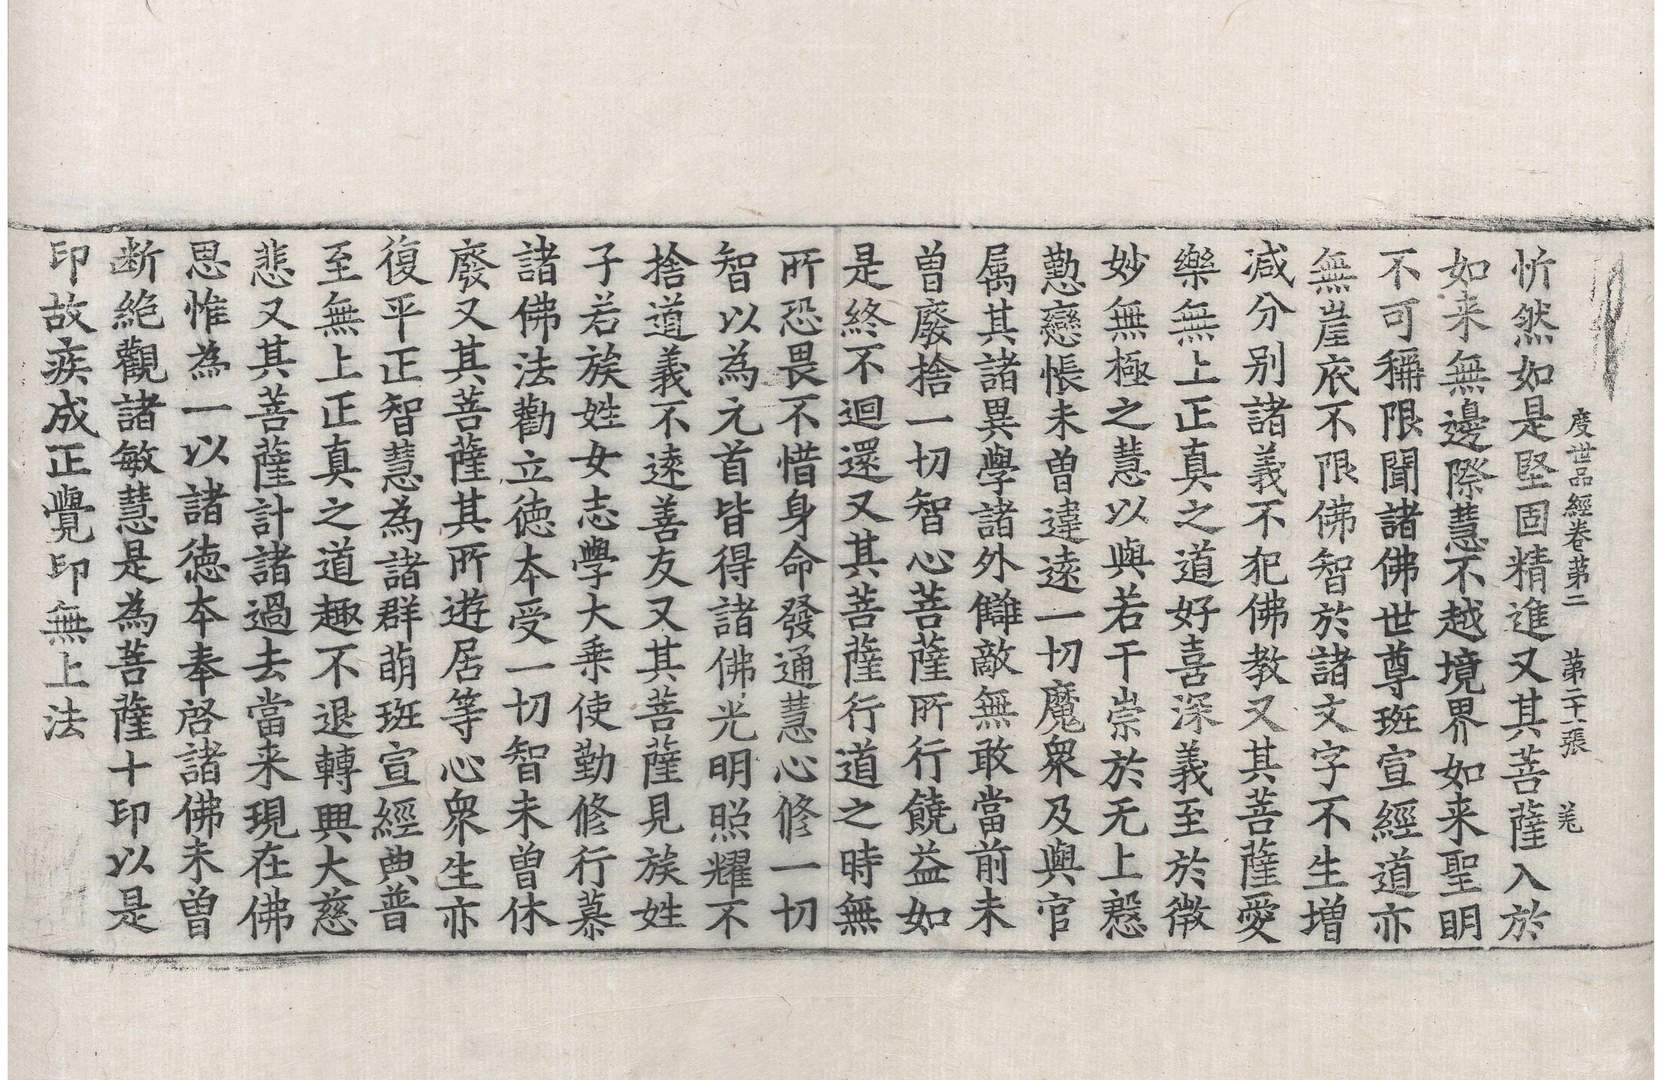 度世品經卷第二　第二十一張　羌
忻然如是堅固精進又其菩薩入於
如来無邊際慧不越境界如来聖明
不可稱限聞諸佛世尊班宣經道亦
無崖底不限佛智於諸文字不生增
减分别諸義不犯佛教又其菩薩愛
樂無上正真之道好喜深義至於微
妙無極之慧以與若干崇於无上慇
懃戀悵未曾違遠一切魔衆及與官
属其諸異學諸外讎敵無敢當前未
曾廢捨一切智心菩薩所行饒益如
是終不迴還又其菩薩行道之時無
所恐畏不惜身命發通慧心修一切
智以為元首皆得諸佛光明照耀不
捨道義不遠善友又其菩薩見族姓
子若族姓女志學大乗使勤修行慕
諸佛法勸立徳本受一切智未曾休
廢又其菩薩其所遊居等心衆生亦
復平正智慧為諸群萌班宣經典普
至無上正真之道趣不退轉興大慈
悲又其菩薩計諸過去當来現在佛
思惟為一以諸徳本奉啓諸佛未曾
断絶觀諸敏慧是為菩薩十印以是
印故疾成正覺印無上法